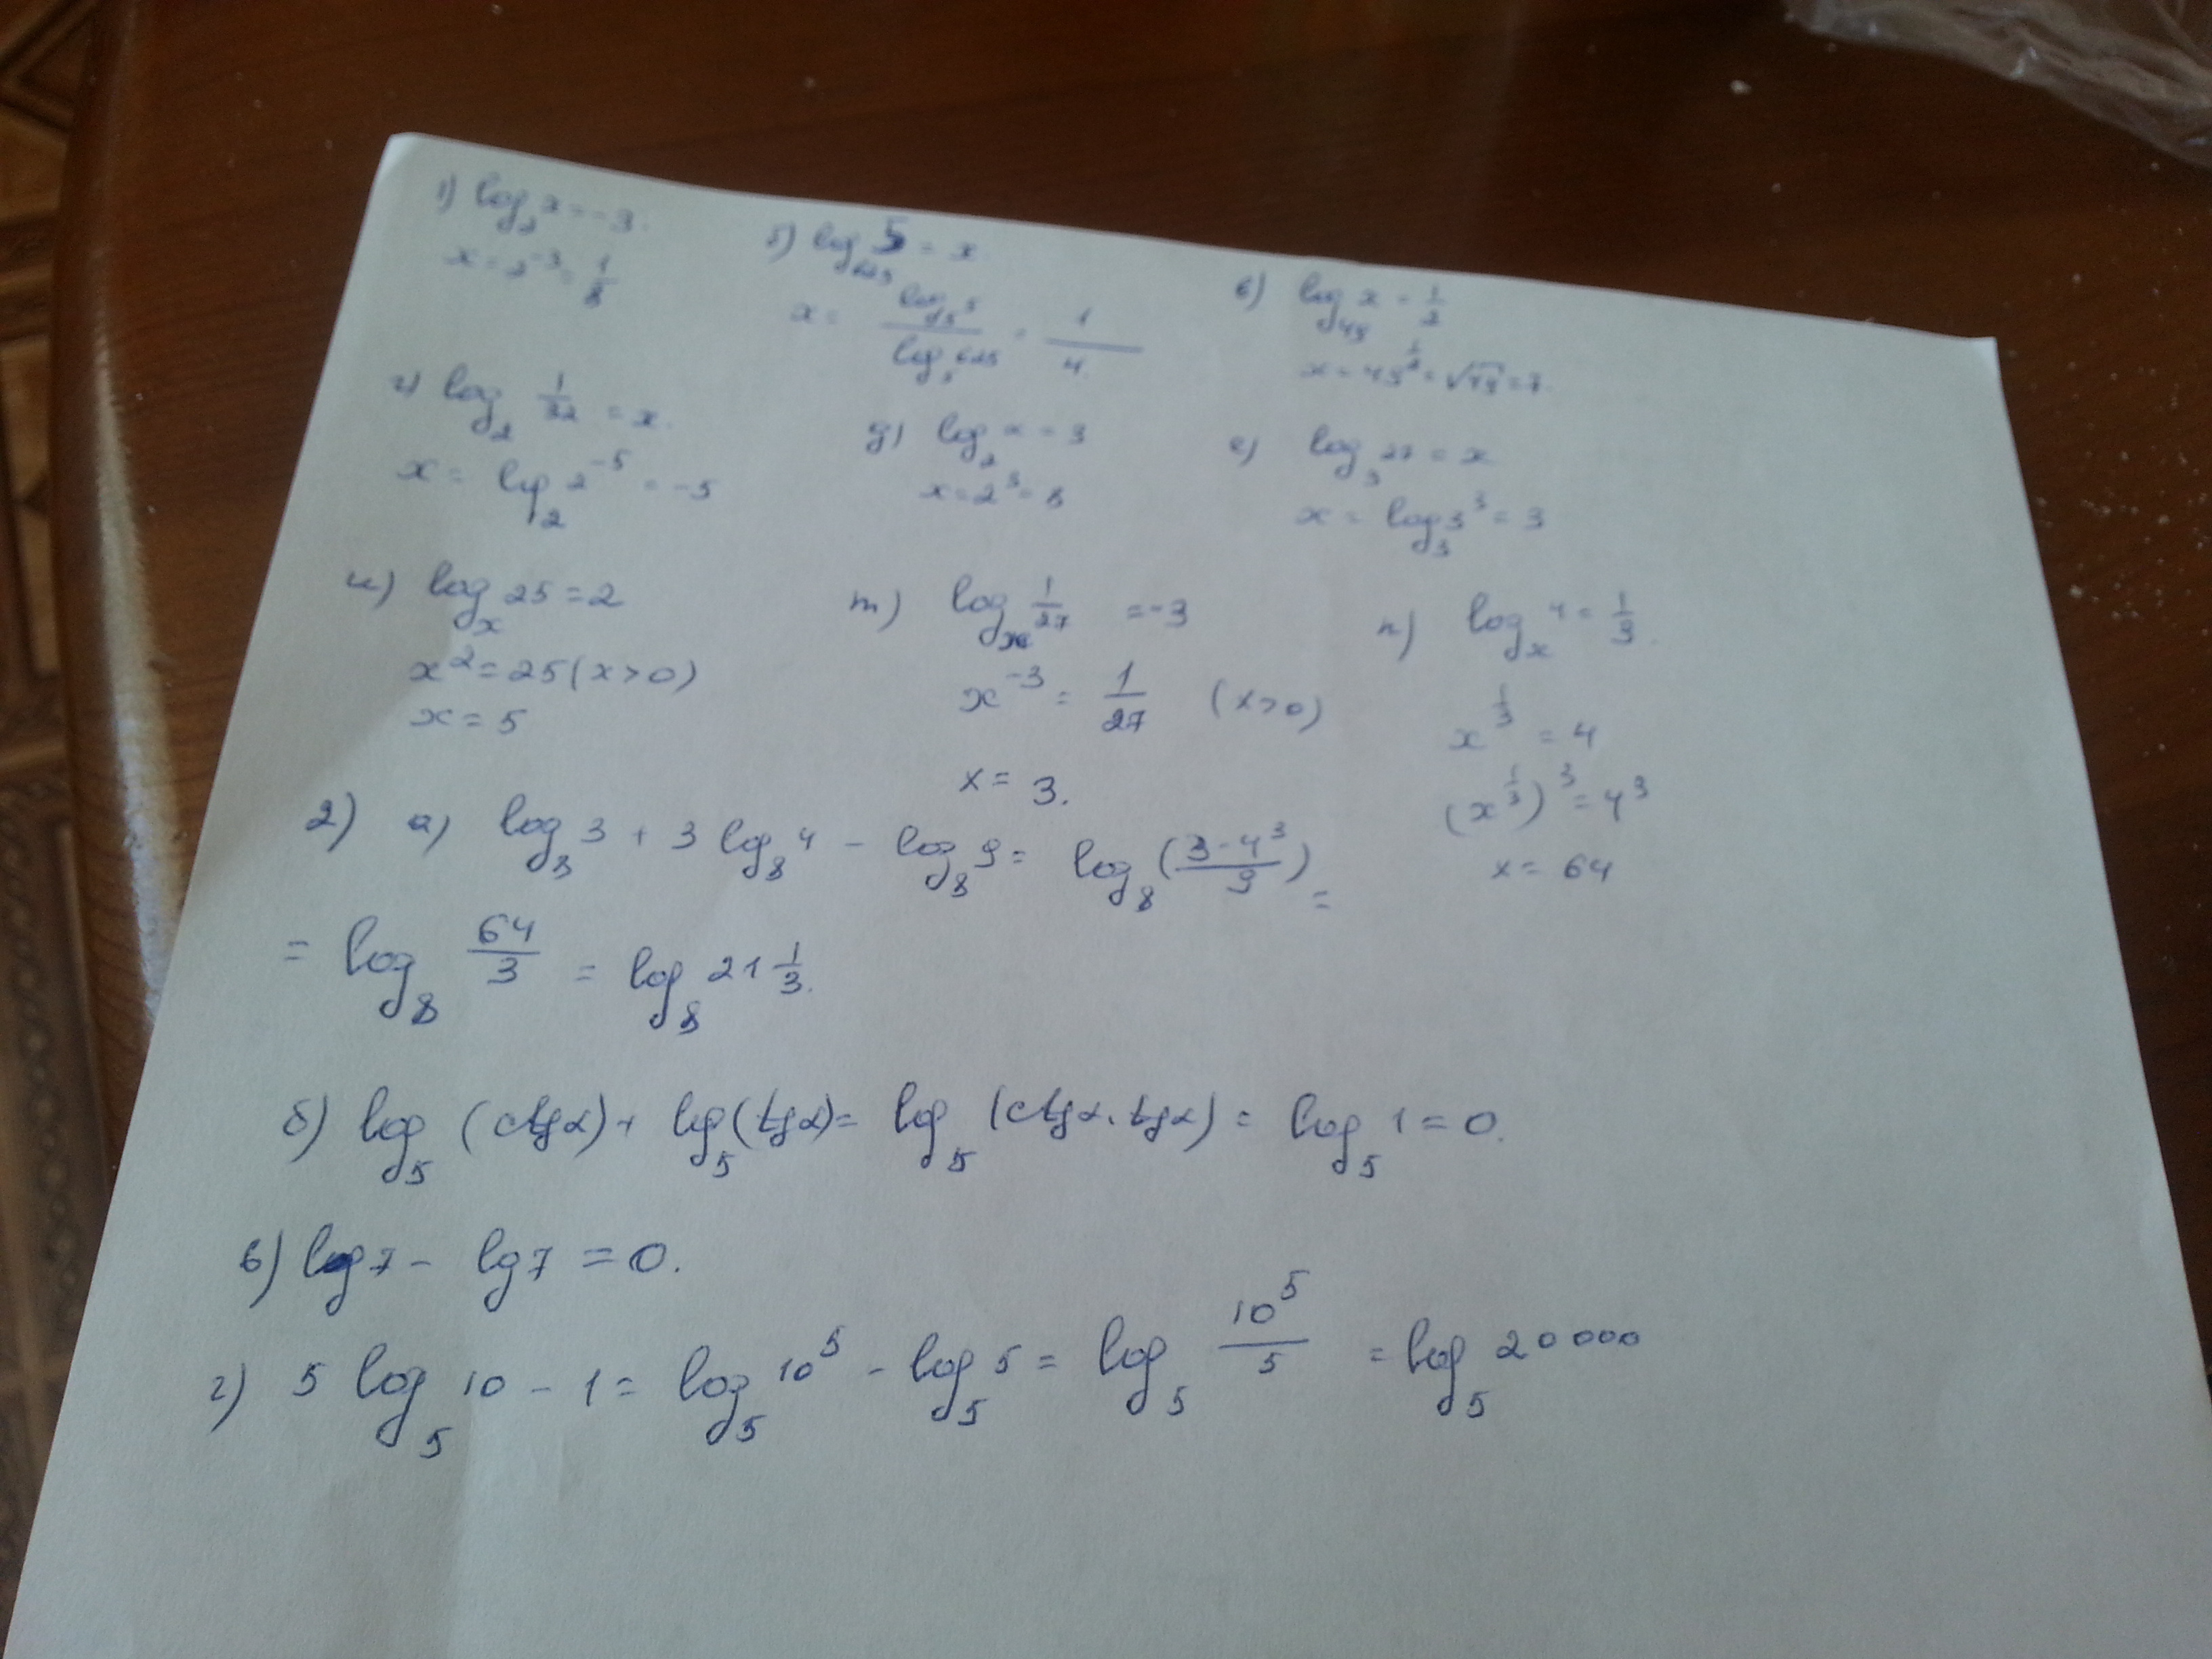 1) log₂ x = -3.
x = 2⁻³ = 1/8
б) log₆₂₅ 5 = x
x = log₅ 5 / log₅ 625 = 1/4
в) log₄₉ x = 1/2
x = 49^(1/2) = √49 = 7.
г) log₂ 1/32 = x.
x = log₂ 2⁻⁵ = -5
д) log₂ x = 3
x = 2³ = 8
е) log₃ 27 = x
x = log₃ 3³ = 3
и) logₓ 25 = 2
x² = 25 (x > 0)
x = 5
т) logₓ 1/27 = -3
x⁻³ = 1/27 (x > 0)
x = 3.
п) logₓ 4 = 1/3.
x^(1/3) = 4
(x^(1/3))³ = 4³
x = 64
2) а) log₈ 3 + 3 log₈ 4 - log₈ 9 = log₈ (3 · 4³ / 9) =
= log₈ 64/3 = log₈ 21 1/3.
б) log₅ (ctg α) + log₅ (tg α) = log₅ (ctg α · tg α) = log₅ 1 = 0.
в) lg 7 - lg 7 = 0.
г) 5 log₅ 10 - 1 = log₅ 10⁵ - log₅ 5 = log₅ 10⁵/5 = log₅ 20000